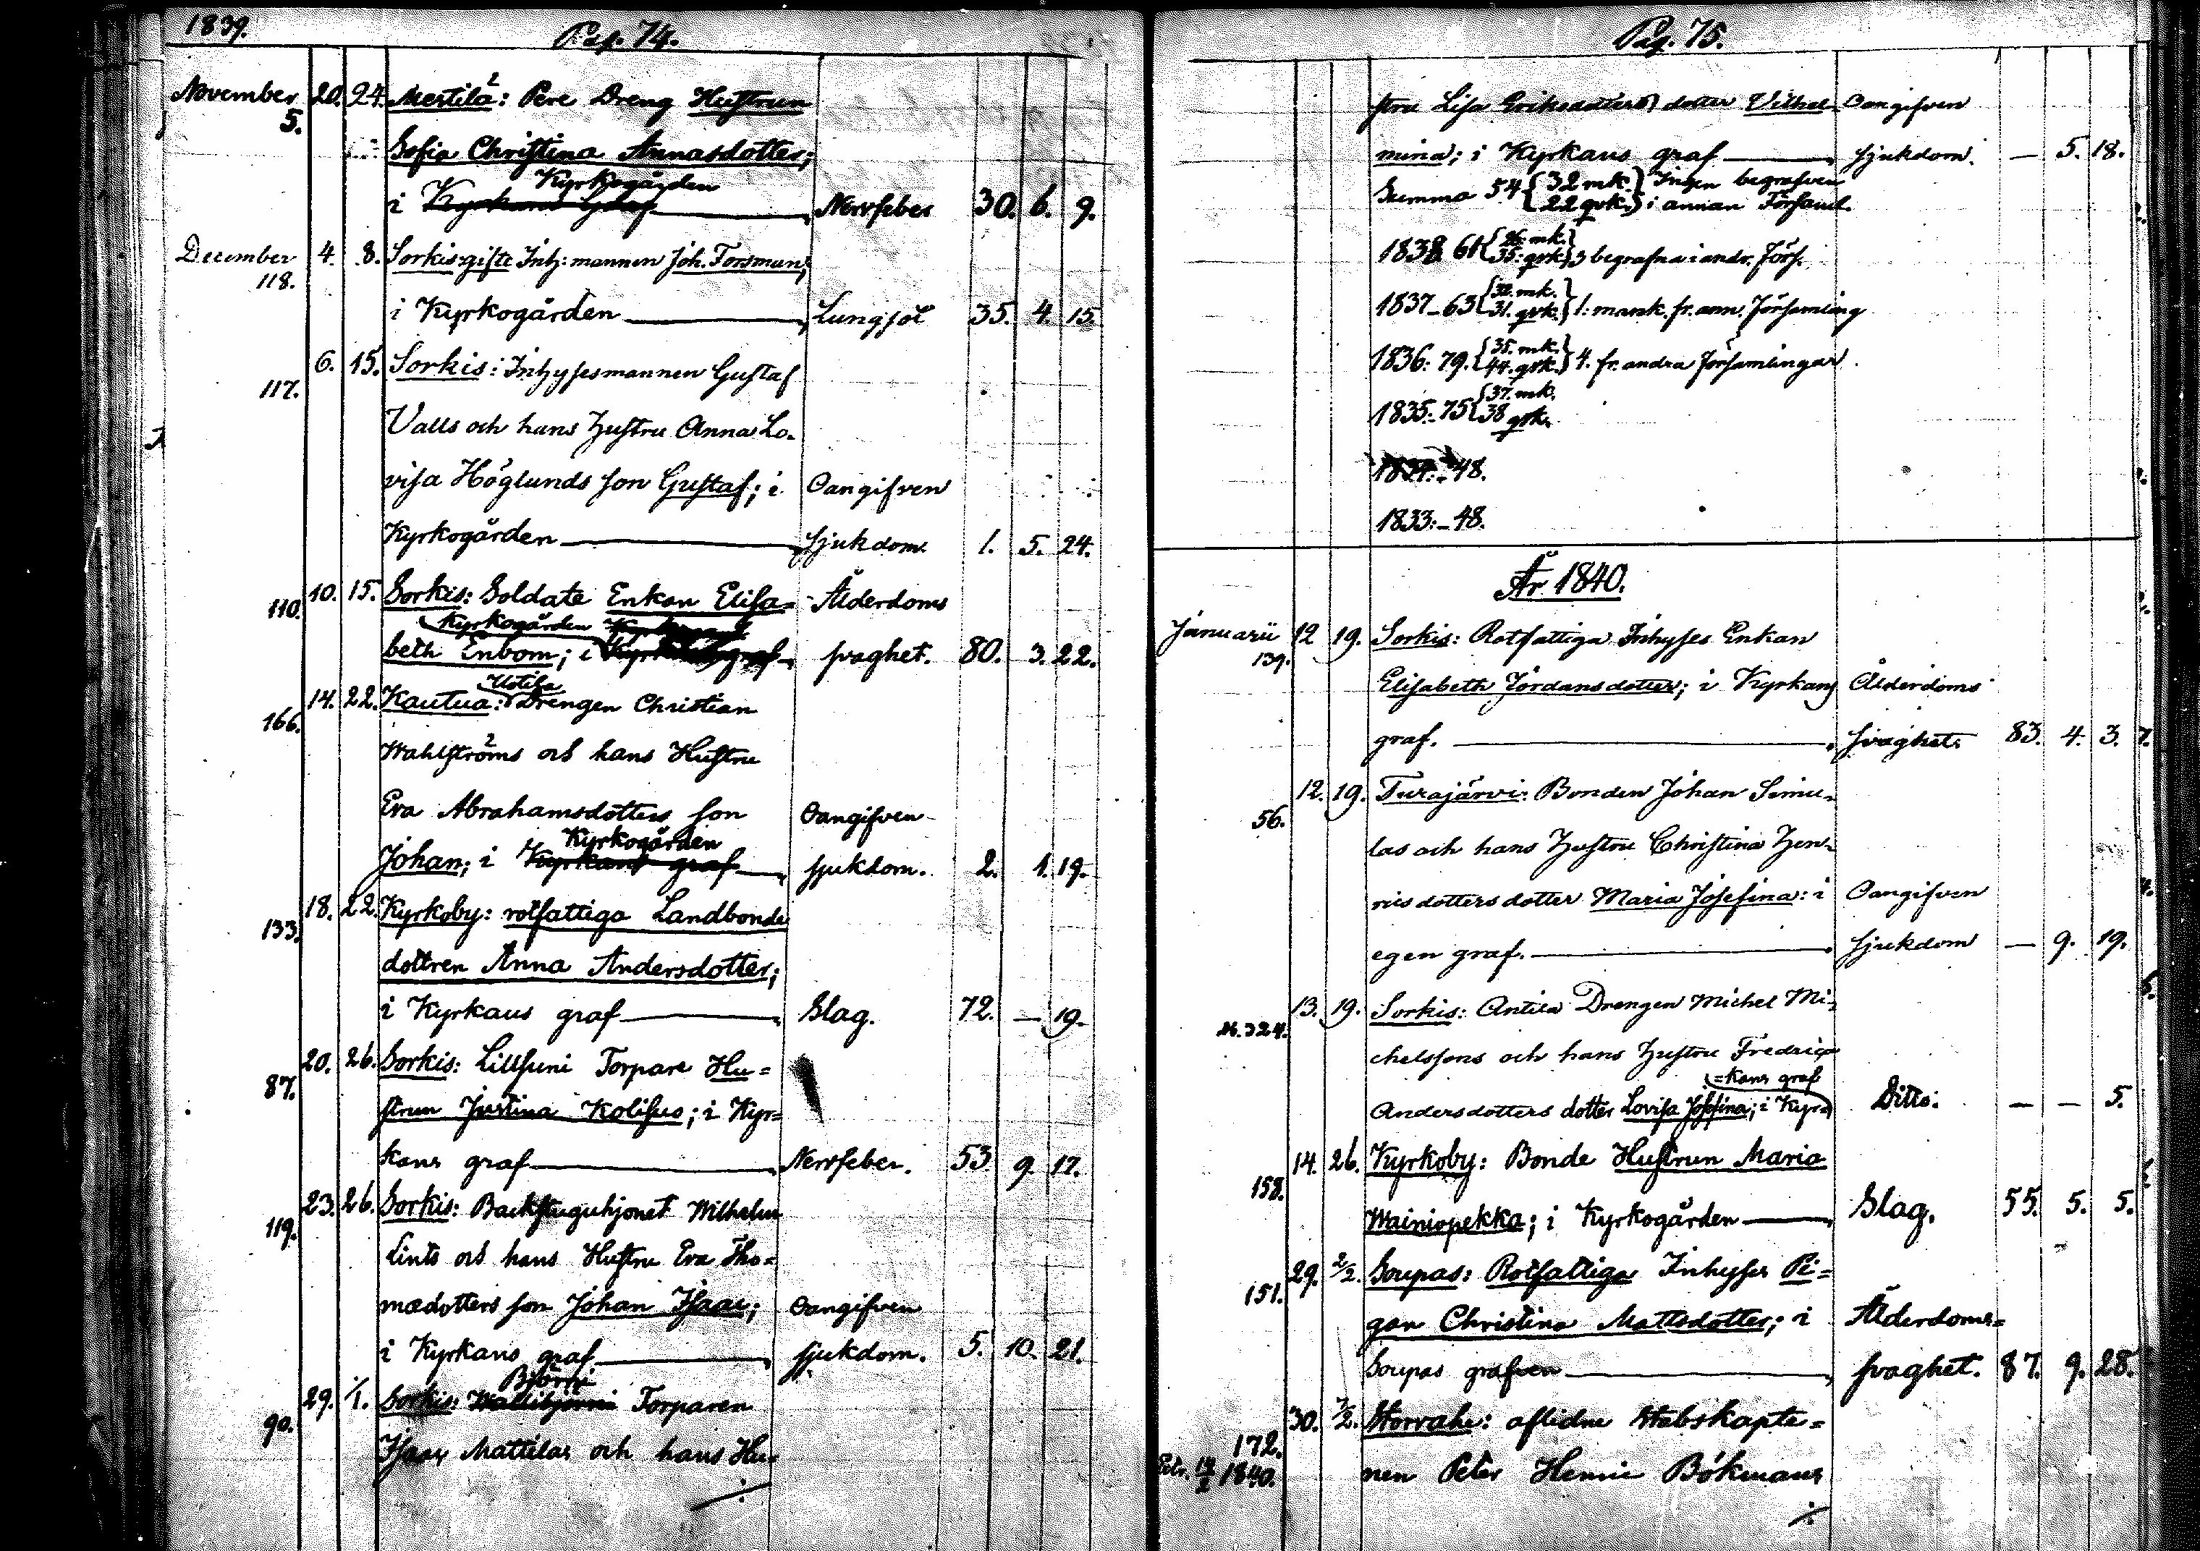 1839. Pag. 74.
November 20. 24. Mertila: Pere Dreng Hustrun
5.
Sofia Christina Annasdotter;
Kyrkogården
i Kyrkans Graf Nervfeber 30. 6. 9.
December 4. 8. Sorkis: gifte Inh: mannen Joh. Forsman;
118.
i Kyrkogården Lungsot 35. 4. 15
6. 15. Sorkis: Inhysesmannen Gustaf
117.
Valls och hans Hustru Anna Lo-
visa Höglunds son Gustaf; i Oangifven
Kyrkogården sjukdom. 1. 5. 24.
10. 15. Sorkis: Soldate Enkan Elisa= Ålderdoms
110.
Kyrkogården
beth Enbom; i svaghet. 80. 3. 22.
Uotila
14. 22. Kautua: Drengen Christian
166.
Wahlströms och hans Hustru
Eva Abrahamsdotters son Oangifven
Kyrkogården
Johan; i Kyrkans graf sjukdom. 2. 1. 19.
18. 22. Kyrkoby: rotfattiga Landbonde
133.
dottren Anna Andersdotter;
i Kyrkans graf Slag. 72. — 19.
20. 26. Sorkis: Lillsuni Torpare Hu=
87.
strun Justina Kolisus; i Kyr=
kans graf Nervfeber. 53 9. 17.
23. 26. Sorkis: Backstuguhjonet Wilhelm
119.
Lints och hans Hustru Eva Tho=
mædotters son Johan Isaac; Oangifven
i Kyrkans graf sjukdom. 5. 10. 21.
Björni
29. 1/1. Sorkis: Torparen
90.
Isaac Mattilas och hans Hu-
Pag. 75.
stru Lisa Eriksdotters dotter Vilhel- Oangifven
mina; i Kyrkans graf sjukdom. — 5. 18.
Summa 54 {32 mk. 22 qvk.} Ingen begrafven i annan Församl.
1838 61 {26 mk. 35. qvk.} 3 begrafna i andr. Förs.
1837 – 63 {32. mk. 31. qvk.} 1. mansk. fr. ann. Församling
1836: 79. {35. mk. 44. qvk.} 4. fr. andra församlingar.
1835: 75 {37. mk. 38 qvk.
1834: – 48.
1833: – 48.
År 1840.
Januarii 12 19. Sorkis: Rotfattiga Inhyses Enkan
139.
Elisabeth Jordansdotter; i Kyrkans Ålderdoms
graf. svaghet. 83. 4. 3.
12. 19. Turajärvi: Bonden Johan Simu-
56.
las och hans Hustru Christina Hen-
ricsdotters dotter Maria Josefina: i Oangifven
egen graf. sjukdom — 9. 19.
13. 19. Sorkis: Antila Drengen Michel Mi-
324.
chelssons och hans Hustru Fredrica
=kans graf
Andersdotters dotter Lovisa Josefina; i Kyr= Ditto. — — 5.
14. 26. Kyrkoby: Bonde Hustrun Maria
158.
Wainiopekka; i Kyrkogården Slag. 55. 5. 5.
29. 2/2. Soupas: Rotfattiga Inhyses Pi=
151.
gan Christina Mattsdotter; i Ålderdoms=
Soupas grafven svaghet. 87. 9. 28.
30. 7/2. Storrahe: aflidne Stabskapte=
172.
1840.
nen Peter Henric Bökmans